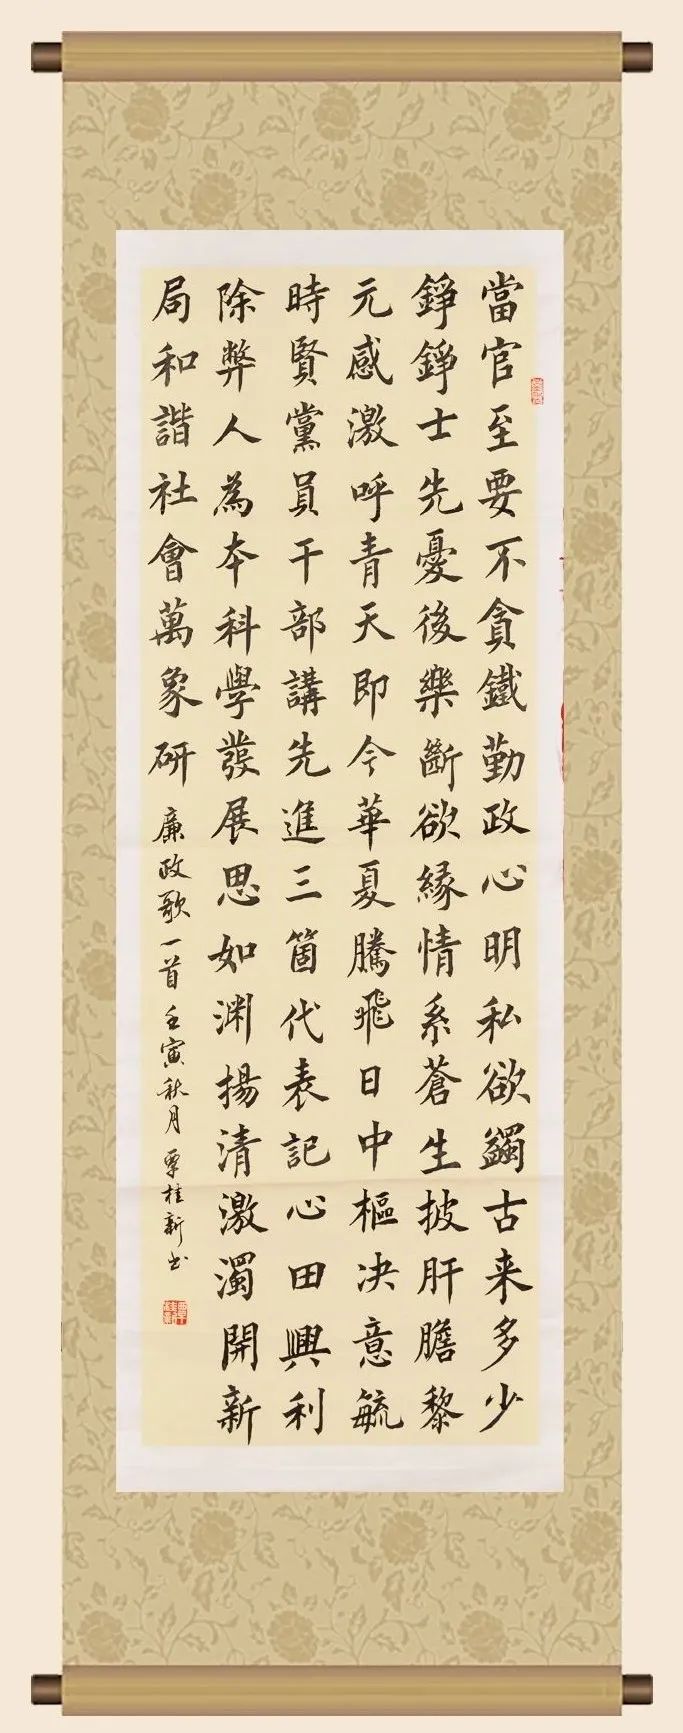 當官至要不貪鐵勤政心明私欲蠲古来多少
錚錚士先憂後樂斷欲緣情系蒼生披肝膽黎
元感激呼青天即今華夏騰飛日中樞决意毓
時賢黨員干部講先進三箇代表記心田興利
除弊人為本科學發展思如淵揚清激濁開新
局和諧社會萬象研
廉政歌一首壬寅秋月覃桂新书